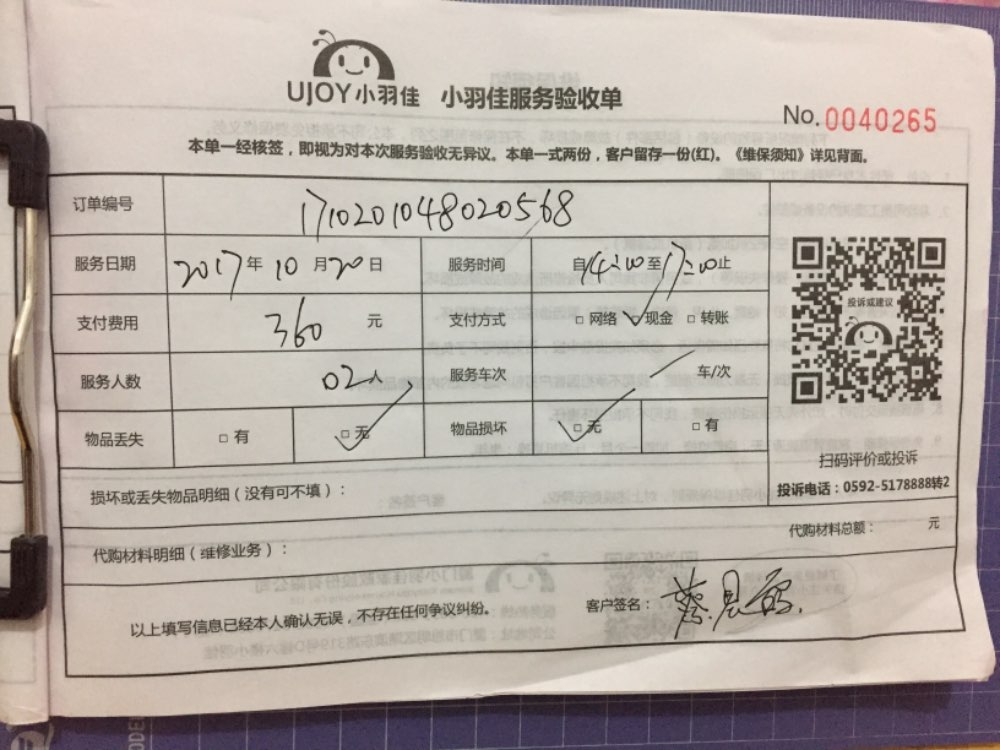 UJOY小羽佳 小羽佳服务验收单
No.0040265
本单一经核签，即视为对本次服务验收无异议。本单一式两份，客户留存一份(红)。《维保须知》详见背面。
订单编号 1710201048020568
服务日期 2017年10月20日 服务时间 自14:00至17:00止
支付费用 360 元 支付方式 □网络 ✓现金 □转账
投诉或建议
服务人数 02人 服务车次 车/次
物品丢失 □有 □无 物品损坏 □无 □有
扫码评价或投诉
损坏或丢失物品明细（没有可不填）：
投诉电话：0592-5178888转2
代购材料明细（维修业务）：
代购材料总额： 元
以上填写信息已经本人确认无误，不存在任何争议纠纷。
客户签名：